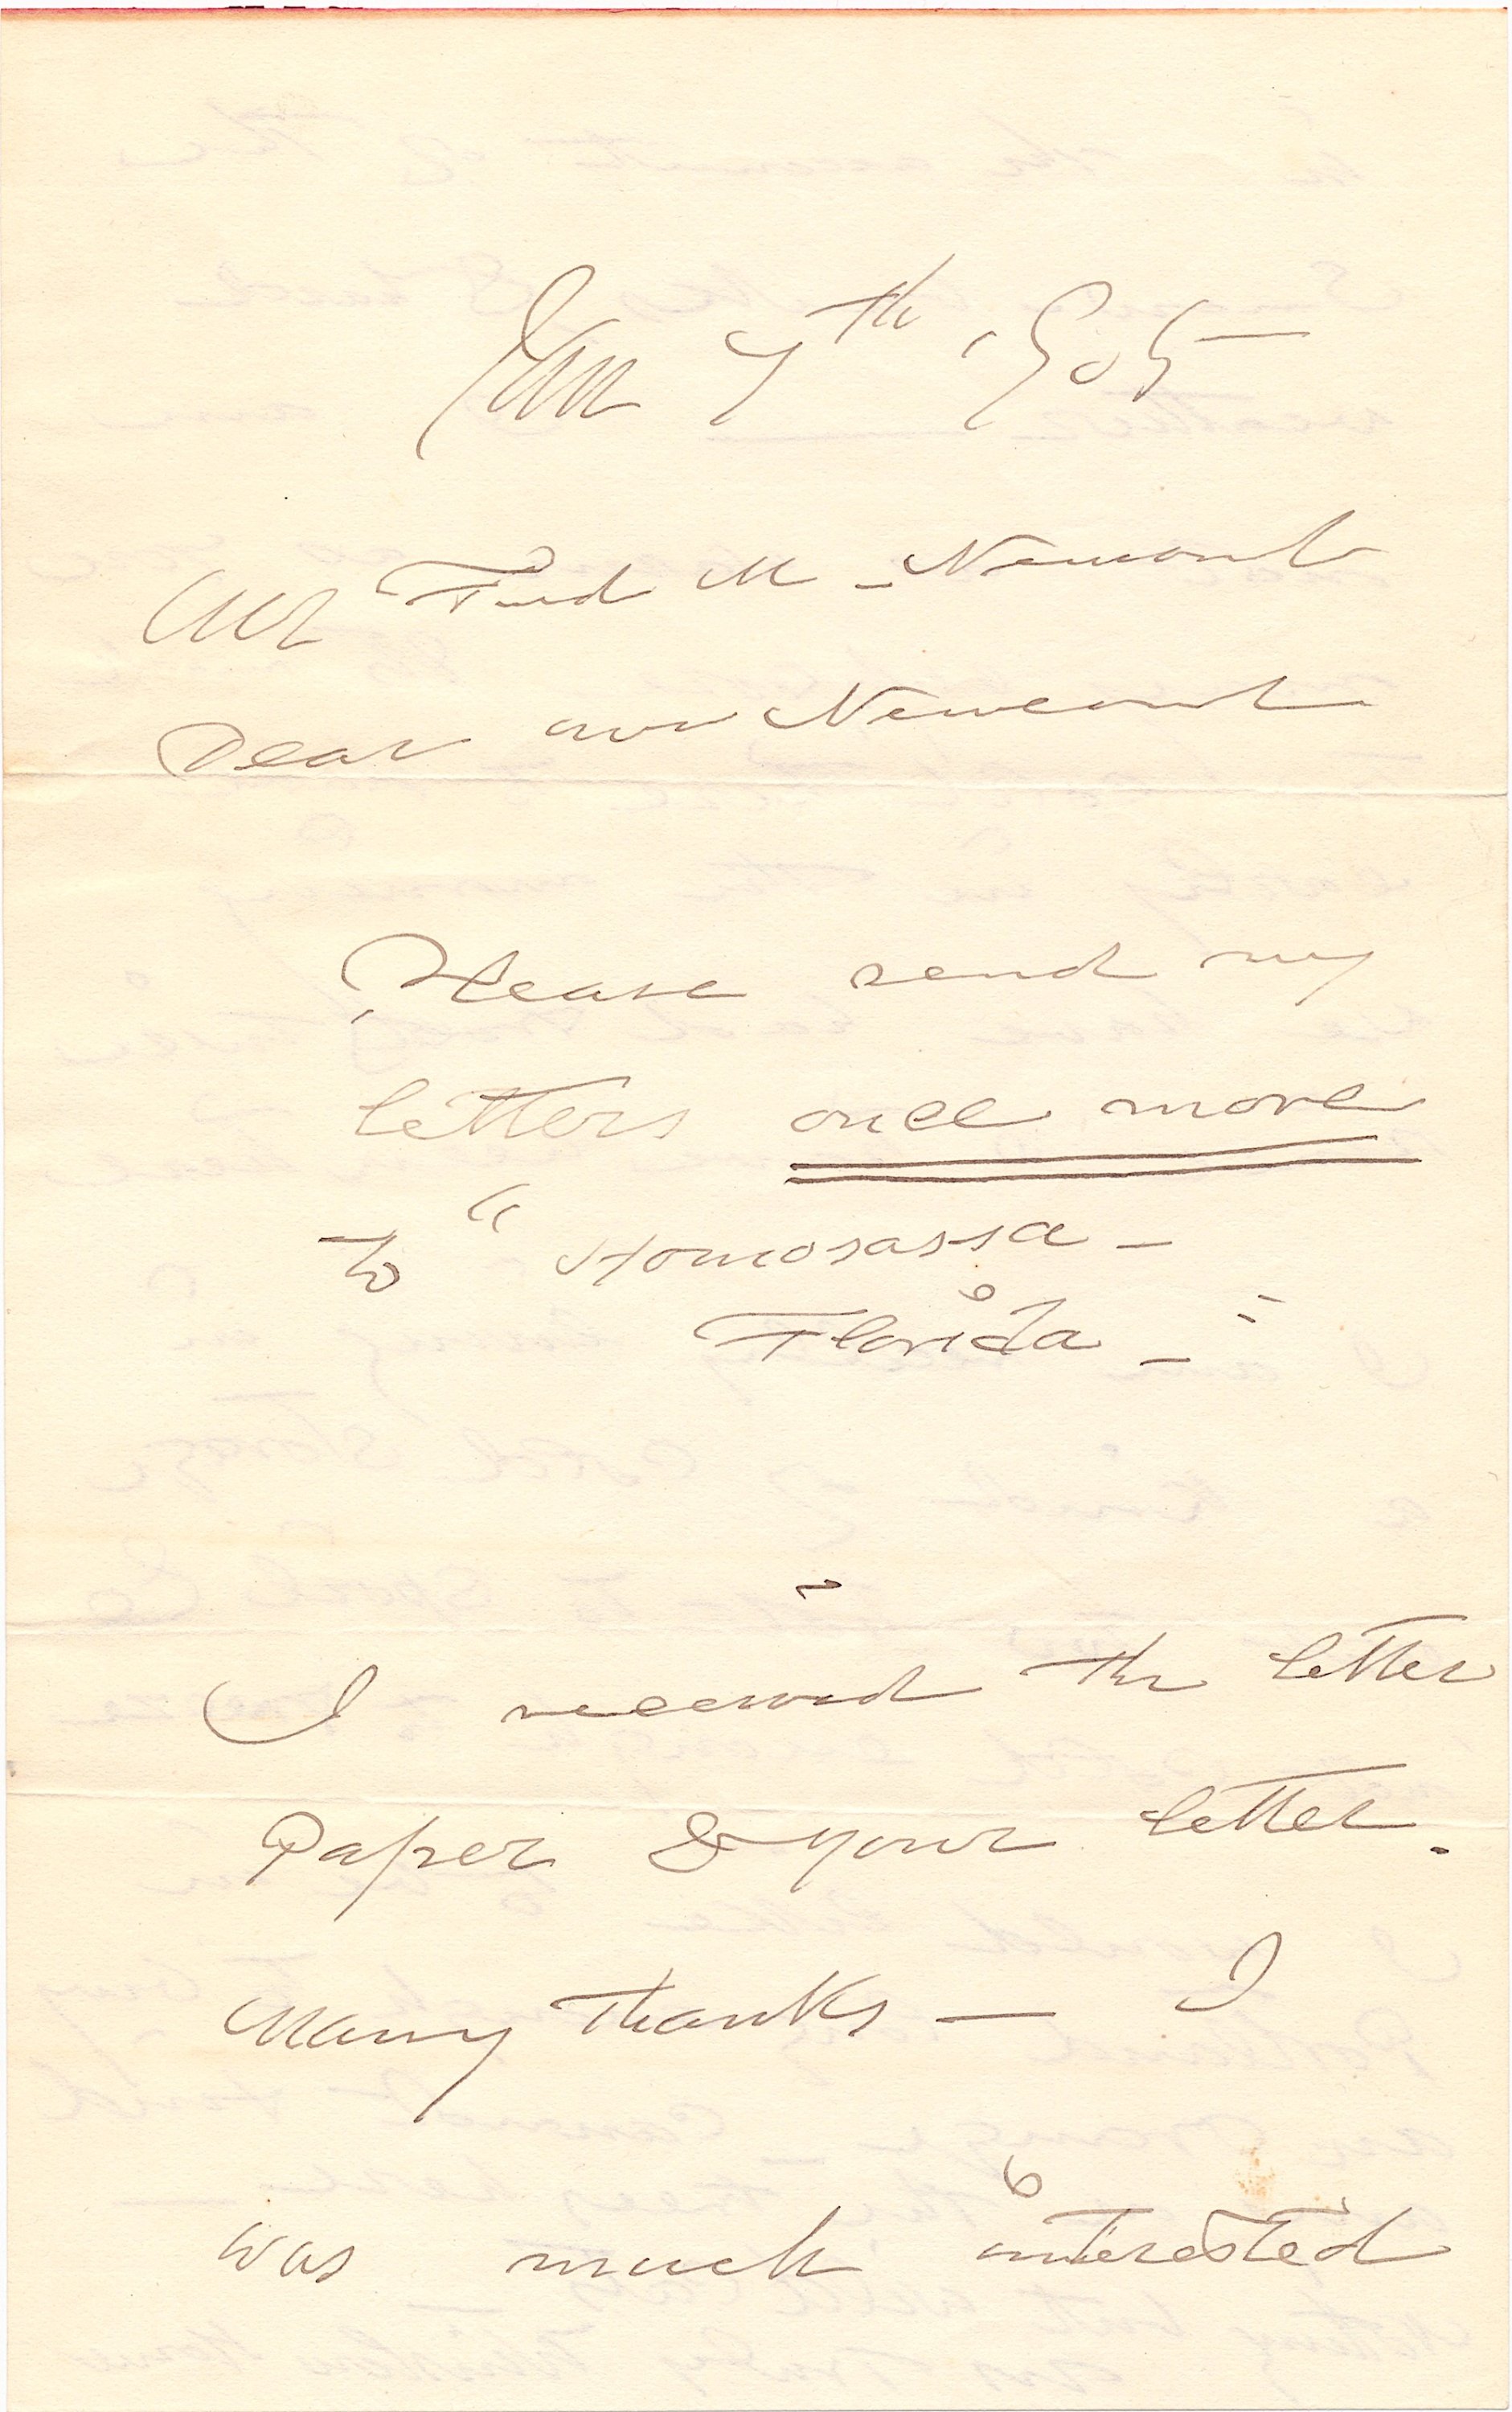 Jan 9th 1905
Mr Fred M - Newcomb
Dear Mr Newcomb
Please send my
letters once more
to "Homosassa -
Florida - "
I received the letter
Paper & your letter.
Many Thanks — I
was much interested